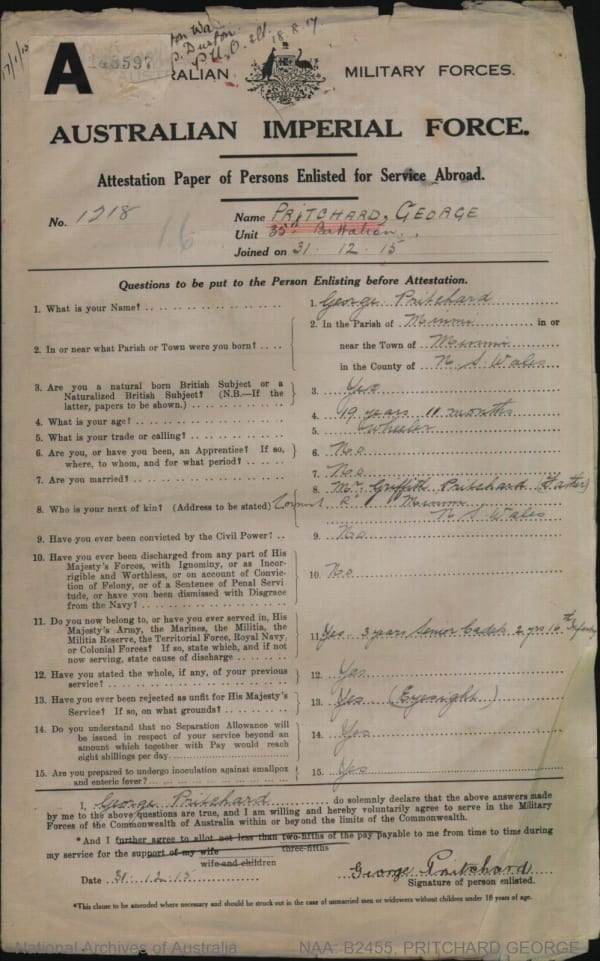 18.8.17
17/1/15
A
148597
RALIAN
MILITARY FORCES.
AUSTRALIAN IMPERIAL FORCE.
Attestation Paper of Persons Enlisted for Service Abroad.
No. 1218
16
Name PRITCHARD, GEORGE
Unit 35th Battalion.
Joined on 31 . 12 . 15
Questions to be put to the Person Enlisting before Attestation.
1. What is your Name?
1. George Pritchard
2. In or near what Parish or Town were you born?
2. In the Parish of Minmi in or
near the Town of Minmi
in the County of N. S. Wales
3. Are you a natural born British Subject or a
Naturalized British Subject? (N.B.—If the
latter, papers to be shown.)
3. Yes
4. What is your age?
4. 19 years 11 months
5. What is your trade or calling?
5. Wheeler
6. Are you, or have you been, an Apprentice? If so,
where, to whom, and for what period?
6. No
7. Are you married?
7. No
8. Who is your next of kin? (Address to be stated)
8. Mr. Griffith Pritchard (Father)
Minmi
N. S. Wales
9. Have you ever been convicted by the Civil Power?
9. No
10. Have you ever been discharged from any part of His
Majesty's Forces, with Ignominy, or as Incor-
rigible and Worthless, or on account of Convic-
tion of Felony, or of a Sentence of Penal Servi
tude, or have you been dismissed with Disgrace
from the Navy?
10. No
11. Do you now belong to, or have you ever served in, His
Majesty's Army, the Marines, the Militia, the
Militia Reserve, the Territorial Force, Royal Navy,
or Colonial Forces? If so, state which, and if not
now serving, state cause of discharge
11. Yes. 3 years Senior Cadets 2 yrs 16th Infantry
12. Have you stated the whole, if any, of your previous
service?
12. Yes
13. Have you ever been rejected as unfit for His Majesty's
Service? If so, on what grounds?
13. Yes (Eyesight)
14. Do you understand that no Separation Allowance will
be issued in respect of your service beyond an
amount which together with Pay would reach
eight shillings per day.
14. Yes
15. Are you prepared to undergo inoculation against smallpox
and enteric fever?
15. Yes
I, George Pritchard do solemnly declare that the above answers made
by me to the above questions are true, and I am willing and hereby voluntarily agree to serve in the Military
Forces of the Commonwealth of Australia within or beyond the limits of the Commonwealth.
*And I further agree to allot not less than two-fifths of the pay payable to me from time to time during
three-fifths
my service for the support of my wife
wife and children
Date 31.12.15
George Pritchard
Signature of person enlisted.
*This clause to be amended where necessary and should be struck out in the case of unmarried men or widowers without children under 18 years of age.
National Archives of Australia
NAA: B2455, PRITCHARD GEORGE